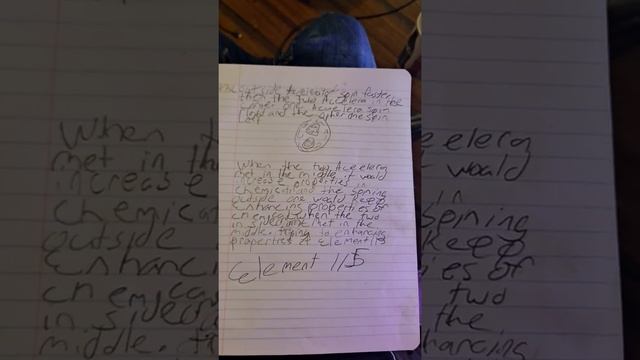 outside Accelera spin faster
then the two Accelera in the
inner one Accelera spin
left and the other one spin
When the two Accelera
met in the middle it would
increase properties in
chemical and the spining
outside one would keep
Enhancing properties of
chemical when the two
in side met in the
middle. trying to enhancing
properties of Element 115
Element 115